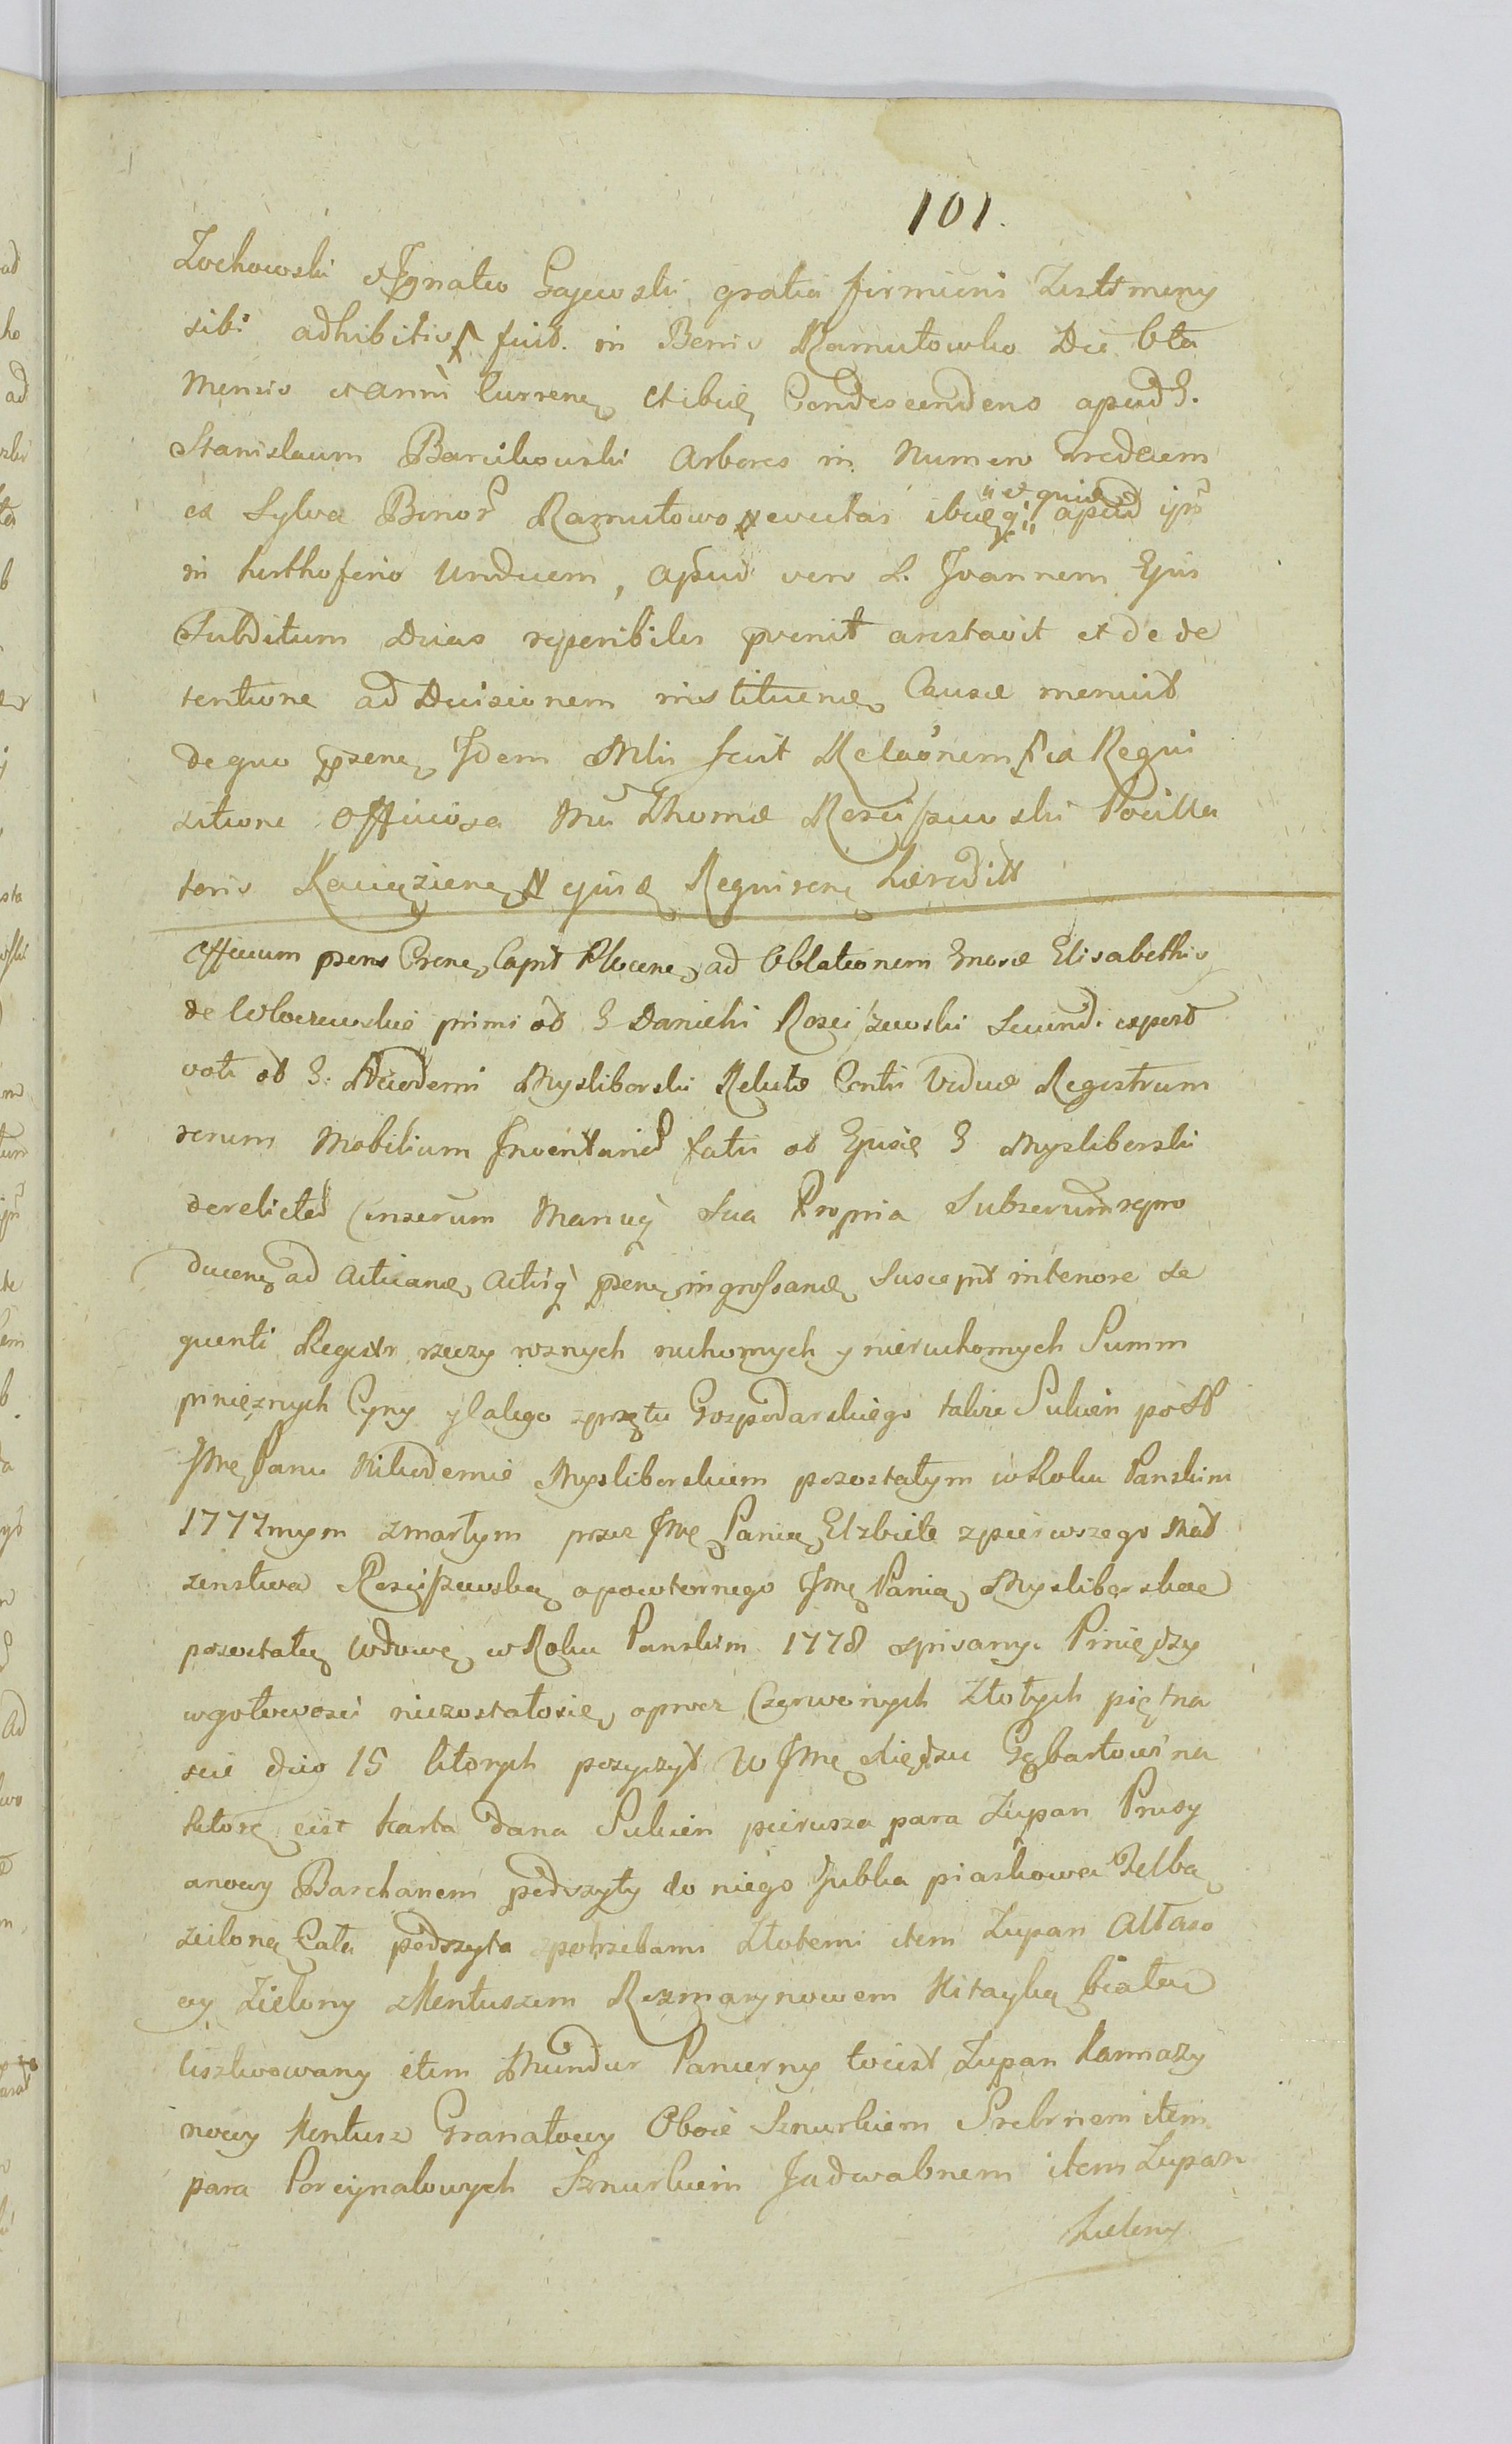 101.
Zochowski et Ignatio Gajewski gratia firmioris Testimony
sibi adhibitis fuit in Bonis Ramutowko Die 6ta
Mensis et anni Curren, et ibid, Condescendens apud G.
Stanislaum Barcikowski Arbores in Numero tredecim
ex Sylva Bonor Ramutowo evectas ibidq; apud ips
in horthoferio Undecem, apud vero L. Joannem Ejus
Subditum Duas reperibiles pvenit arestavit et de de
tentione ad Decisionem instituend, Causæ monuit
de quo psens, Idem Mlis fecit Relaonem ex Requi
sitione Officiosa Mci Thomæ Rosciszewski Pocilla
toris Raciązienę, ejusd, Requirenę hæredit
Officium psens Crense, Capit Plocense, ad Oblationem Gnosæ Elisabethis
de Wloczewskie primi ad G Danielis Rosciszewski Secundi expost
voti ad G. Nicodemi Mysliborski Relictæ Contis Viduæ Registrum
rerum Mobilium Inventarie fatis ab Ejusdę G Mysliborski
derelicted Conserum Manuq; Sua Propria Subscrum repro
ducens ad Acticand, Actisq; psens, ingrossand, Suscepit intenore se
quenti Registr rzeczy roznych ruchomych y nieruchomych Summ
pinięznych Cyny y całego zprzętu Gospodarskiego takze Sukien po S
Jmę Panu Nikodemie Mysliborskiem pozostałym w Roku Panskim
1777mym zmartym przez Jmę Panię Elzbiete zpierwszego Mał
zenstwa Rosciszewską apowtornego Jmę Panią Mysliborskae
pozostałą Wdowę w Roku Panskim 1778 spisany. Piniędzy
wgotowosci niezostałosię, oprocz Czerwonych Złotych piętna
scie dico 15 ktorych pozyczył W Jmę Xiędzu Gębartowi na
ktorę iest karta dana Sukien pierwsza para Zupan Prusy
anowy Barchanem podszyty do niego Jubka piaskowa Zelbą
zieloną Cała podszyta zpotrzebami Złotemi item Zupan Atłaso
wy Zielony zKentuszem Rozmarynowem Kitayką białaą
liszlwowany item Mundur Pancerny toiest Zupan Karmazy
nowy Kentusz Granatowy Oboie Sznurkiem Srebrnem item
para Porcynalowych Sznurkiem Jadwabnem item Zupan
Zielony